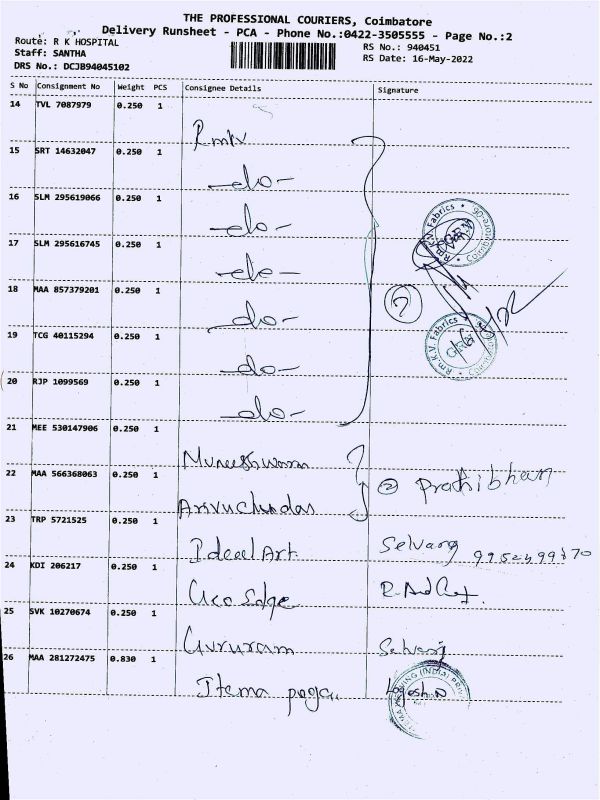 THE PROFESSIONAL COURIERS, Coimbatore
Delivery Runsheet - PCA - Phone No.:0422-3505555 - Page No.:2
Route: R K HOSPITAL
Staff: SANTHA
DRS No.: DCJB94045102
RS No.: 940451
RS Date: 16-May-2022
S No Consignment No Weight PCS Consignee Details Signature
14 TVL 7087979 0.250 1
Rmkv
15 SRT 14632047 0.250 1
-do-
16 SLM 295619066 0.250 1
-do-
17 SLM 295616745 0.250 1
-do-
18 MAA 857379201 0.250 1
-do-
19 TCG 40115294 0.250 1
-do-
20 RJP 1099569 0.250 1
-do-
Rm.K.V. Fabrics
Coimbatore-06
7
Rm.K.V. Fabrics
21 MEE 530147906 0.250 1
Muneeshwaran
22 MAA 566368063 0.250 1
Arivuchudar
2 Prathibhan
23 TRP 5721525 0.250 1
Ideal Art Selvaraj
24 KDI 206217 0.250 1
25 SVK 10270674 0.250 1
Gururam Selvaraj
26 MAA 281272475 0.830 1
Itema
WEAVING (INDIA)